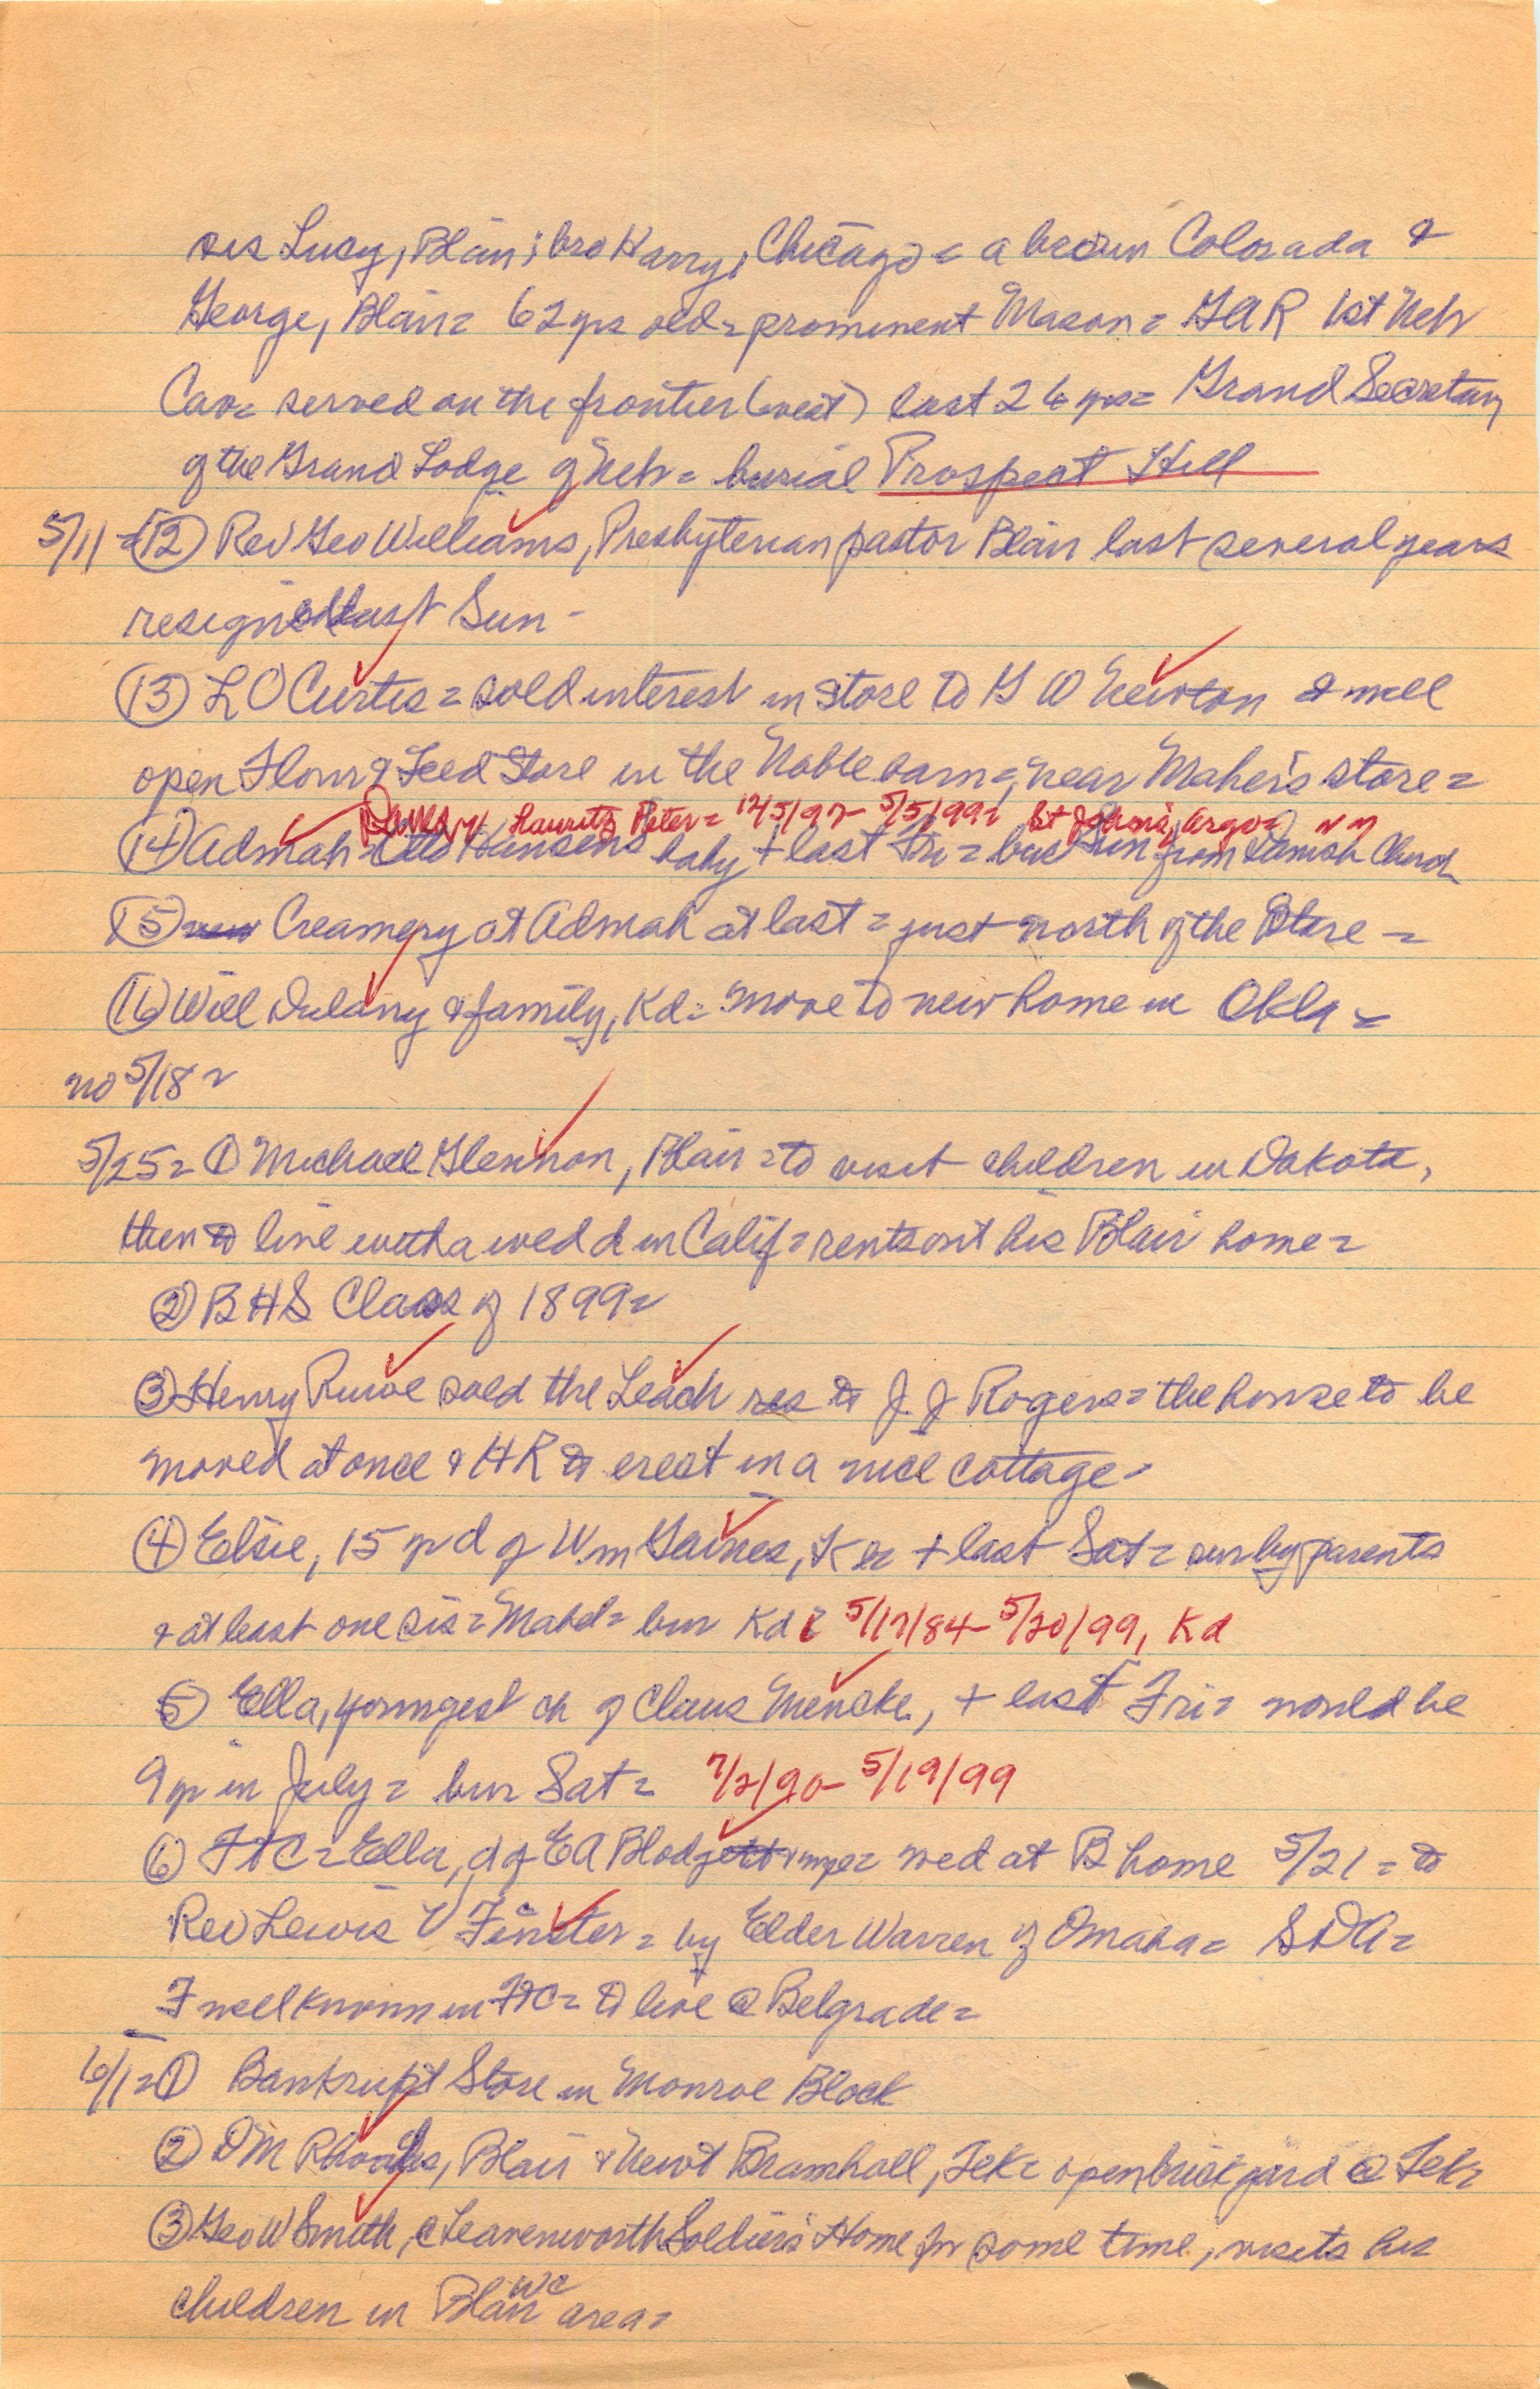 sis Lucy, Blair; bro Harry, Chicago = a bro in Colorado &
George, Blair = 62 yrs old = prominent Mason = GAR 1st Neb
Cav = served on the frontier (west) last 26 yrs = Grand Secretary
of the Grand Lodge of Neb = burial Prospect Hill
5/11 = (12) Rev Geo Williams, Presbyterian pastor Blair last several years
resigned last Sun -
(13) L O Curtis = sold interest in store to G W Newton & will
open Flour & Feed Store in the Noble barn =, near Maher's store =
Lauritz Peter = 12/5/97 - 5/5/99 = St John's, Argo =
(14) Admah = Otto Hansen's baby + last Fri = bur Sun from Danish Church
(15) new Creamery at Admah at last = just north of the Store =
(16) Will Dulany & family, Kd = move to new home in Okla =
no 5/18 =
5/25 = (1) Michael Glennon, Blair = to visit children in Dakota,
then to live with a wed d in Calif = rents out his Blair home =
(2) BHS Class of 1899 =
(3) Henry Ruwe sold the Leach res to J. J Rogers = the house to be
moved at once & HR to erect in a nice cottage -
(4) Elsie, 15 yr d of Wm Gaines, Ken + last Sat = sur by parents
& at least one sis = Mabel = bur Kd 5/17/84 - 5/20/99, Kd
(5) Ella, youngest ch of Claus Mencke, + last Fri = would be
9 yr in July = bur Sat = 7/2/90 - 5/19/99
(6) FtC = Ella, d of E A Blodgett = wed at B home 5/21 = to
Rev Lewis V Finster = by Elder Warren of Omaha = SDA =
F well known in FtC = to live @ Belgrade =
6/1 = (1) Bankrupt Store in Monroe Block
(2) D M Rhoades, Blair & Newt Bramhall, Tek = open brick yard @ Tek =
(3) Geo W Smith, @ Leavenworth Soldiers Home for some time, visits his
children in Blair WC area =